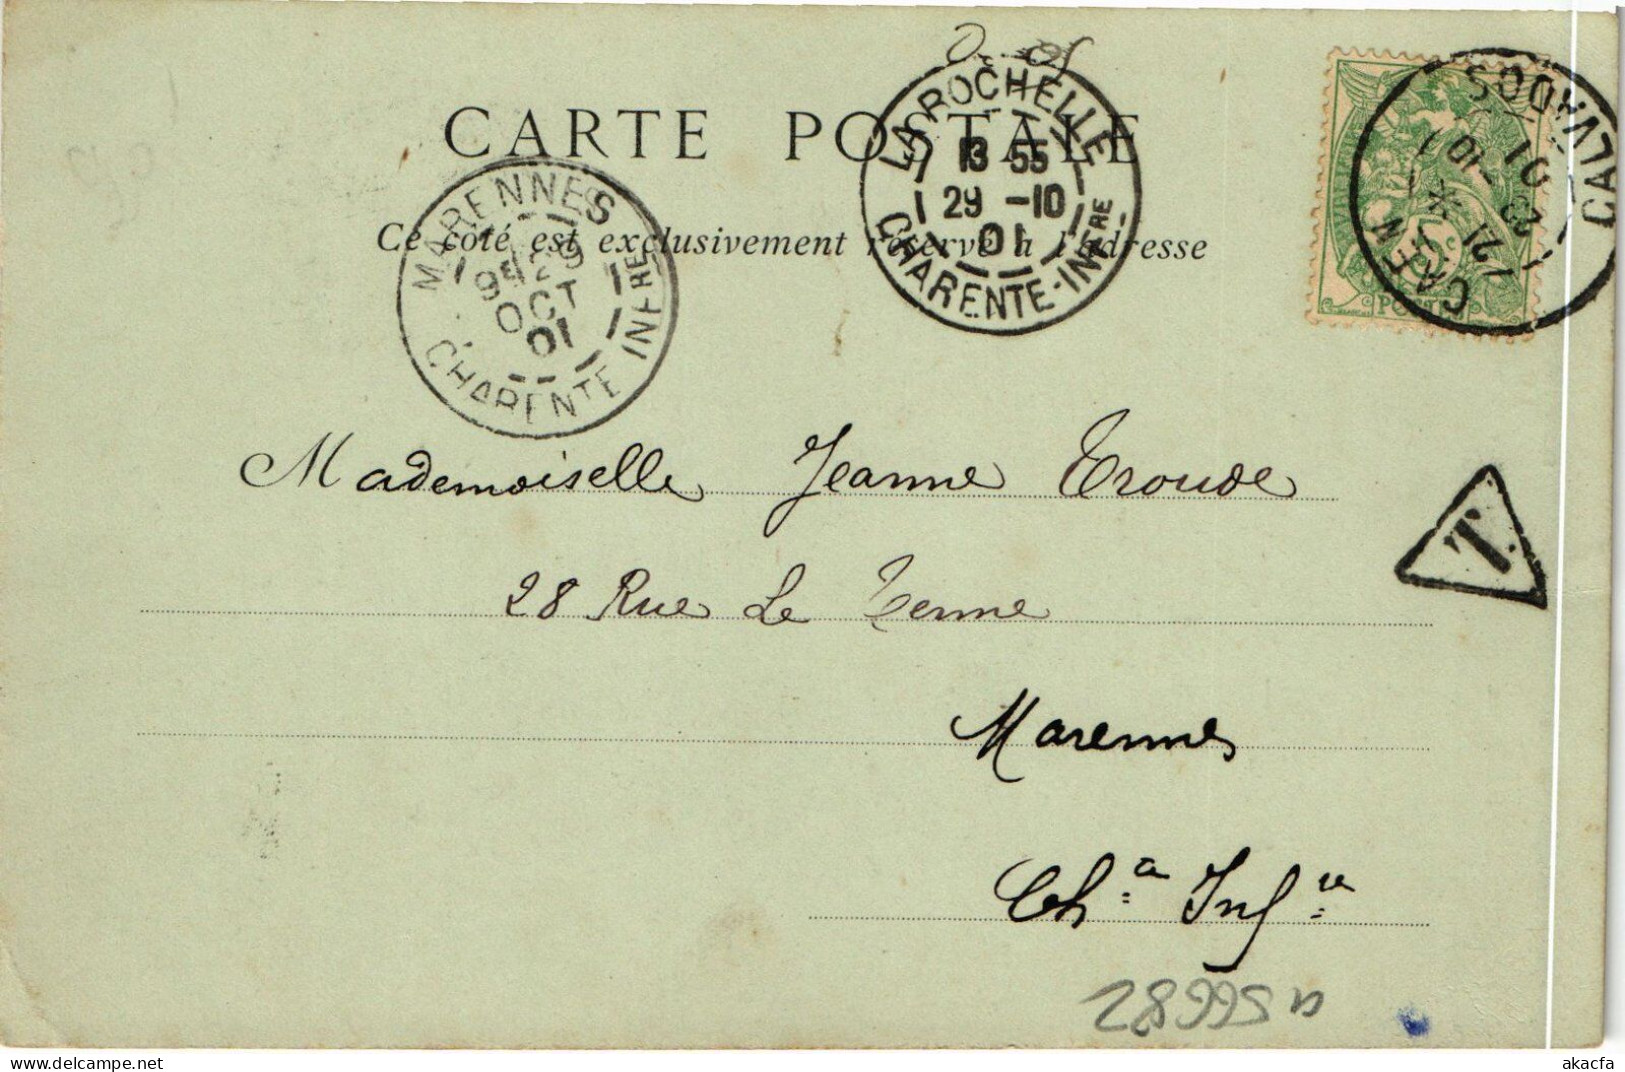 CARTE POSTALE
Ce côté est exclusivement réservé à l'adresse
LA ROCHELLE
13 55
29 -10
01
CHARENTE-INF^RE
MARENNES
29
OCT
01
CHARENTE INF^RE
CAEN
CALVADOS
POSTES
T.
Mademoiselle Jeanne Troude
28 Rue Le Terme
Marennes
Ch^te Inf^re
28995
akacfa